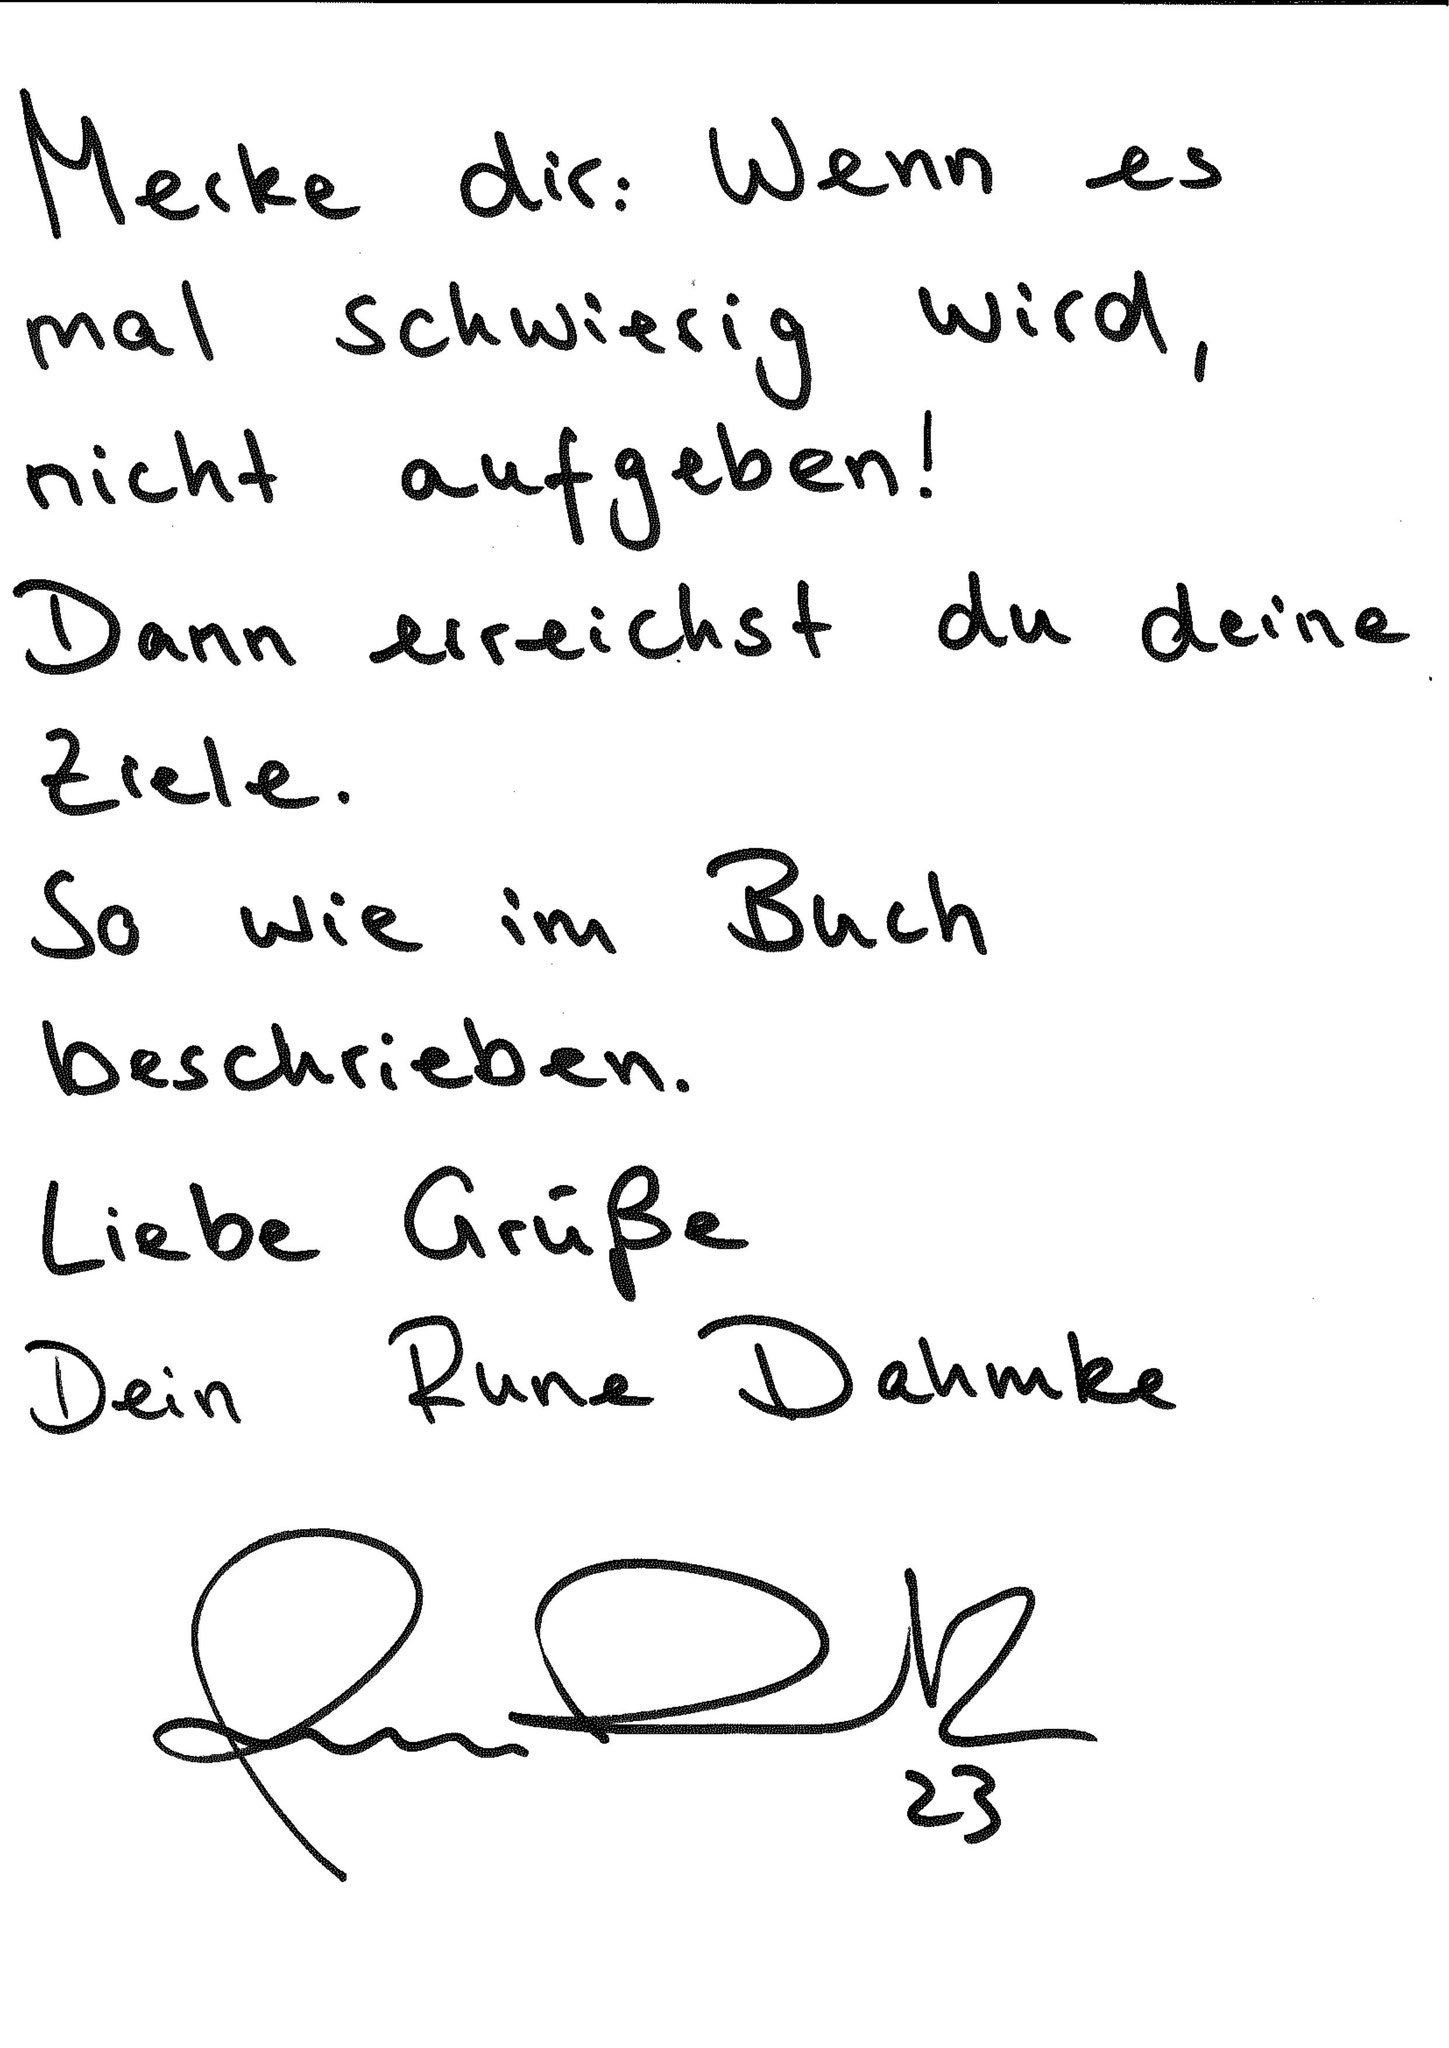 Merke dir: Wenn es
mal schwierig wird,
nicht aufgeben!
Dann erreichst du deine
Ziele.
So wie im Buch
beschrieben.
Liebe Grüße
Dein Rune Dahmke
23